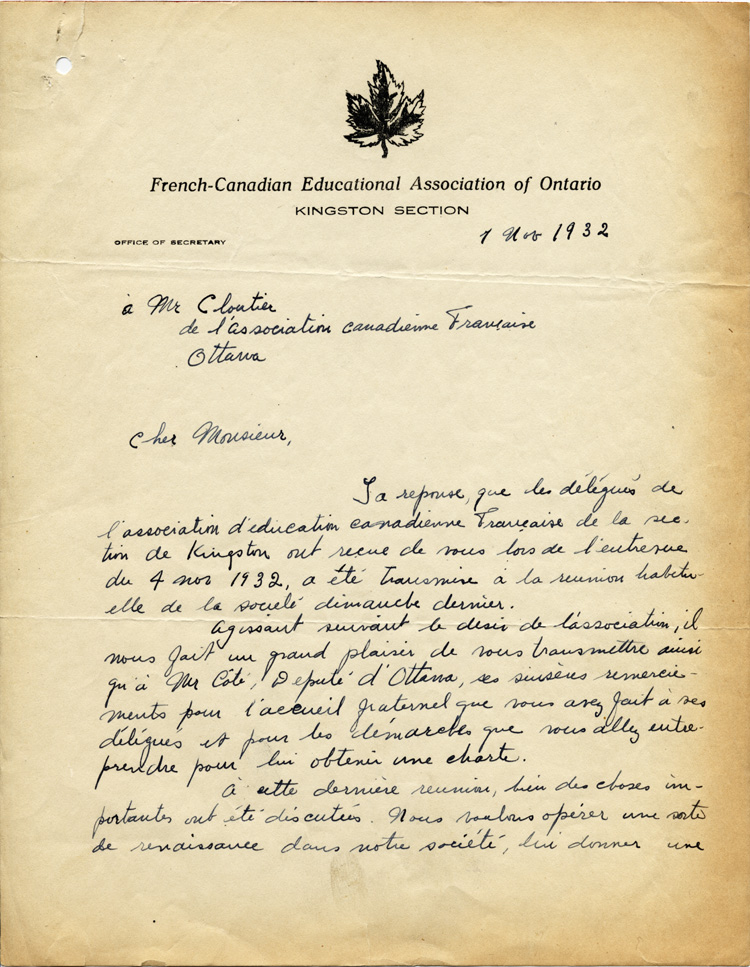 French-Canadian Educational Association of Ontario
KINGSTON SECTION
OFFICE OF SECRETARY
7 Nov 1932
à Mr Cloutier
de l'association canadienne Française
Ottawa
Cher Monsieur,
La reponse, que les délégués de
l'association d'education canadienne Française de la sec-
tion de Kingston ont reçue de vous lors de l'entrevue
du 4 nov 1932, a été transmise à la reunion habitu-
elle de la société dimanche dernier.
Agissant suivant le desir de l'association, il
nous fait un grand plaisir de vous transmettre ainsi
qu'à Mr Côté, Deputé d'Ottawa, ses sinsères remercie-
ments pour l'accueil fraternel que vous avez fait à ses
délégués et pour les démarches que vous allez entre-
prendre pour lui obtenir une charte.
À cette dernière reunion, bien des choses im-
portantes ont été discutées. Nous voulons opérer une sorte
de renaissance dans notre société, lui donner une